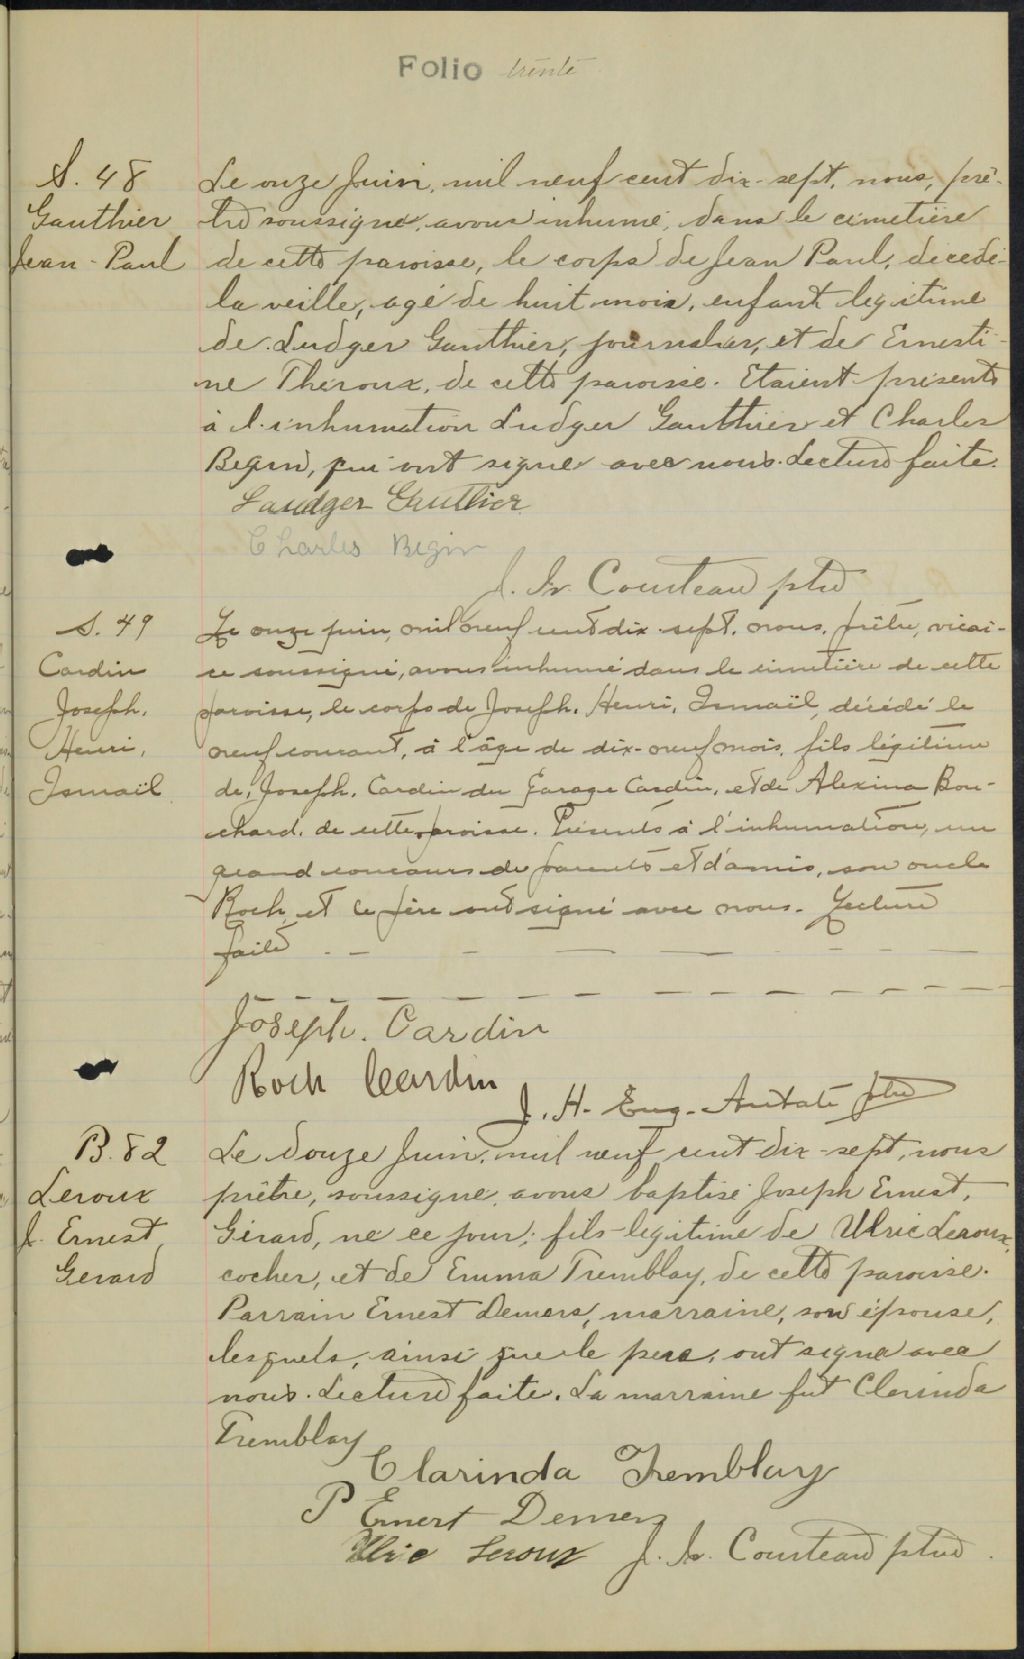 Folio trente
S. 48
Gauthier
Jean-Paul
Le onze Juin, mil neuf cent dix-sept, nous, prê-
tre soussigné, avons inhumé, dans le cimetière
de cette paroisse, le corps de Jean Paul, décédé
la veille, agé de huit mois, enfant legitime
de Ludger Gauthier, journalier, et de Ernesti-
ne Théroux, de cette paroisse. Etaient présents
à l'inhumation Ludger Gauthier et Charles
Begin, qui ont signé avec nous. Lecture faite.
Laudger Gauthier
Charles Begin
J. Courteau ptre
S. 49
Cardin
Joseph,
Henri,
Ismaïl
Le onze juin, mil neuf cent dix-sept, nous, prêtre, vicai-
re soussigné, avons inhumé dans le cimetière de cette
paroisse, le corps de Joseph, Henri, Ismaïl, décédé le
neuf courant, à l'âge de dix-neuf mois, fils légitime
de, Joseph, Cardin du Garage Cardin, et de Alexina Bou-
chard, de cette paroisse. Présents à l'inhumation, un
grand concours de parents et d'amis, son oncle
Roch, et le père ont signé avec nous. Lecture
faite
Joseph. Cardin
Roch Cardin
J. H. Eug. ptre
B. 82
Leroux
J. Ernest
Gerard
Le douze Juin, mil neuf cent dix-sept, nous
prêtre, soussigné, avons baptisé Joseph Ernest,
Gérard, né ce jour, fils légitime de Ulric Leroux,
cocher, et de Emma Tremblay, de cette paroisse.
Parrain Ernest Demers, marraine, son épouse,
lesquels, ainsi que le père, ont signé avec
nous. Lecture faite. La marraine fut Clorinda
Tremblay
Clarinda Tremblay
P Ernest Demers
Ulric Leroux
J. Courteau ptre